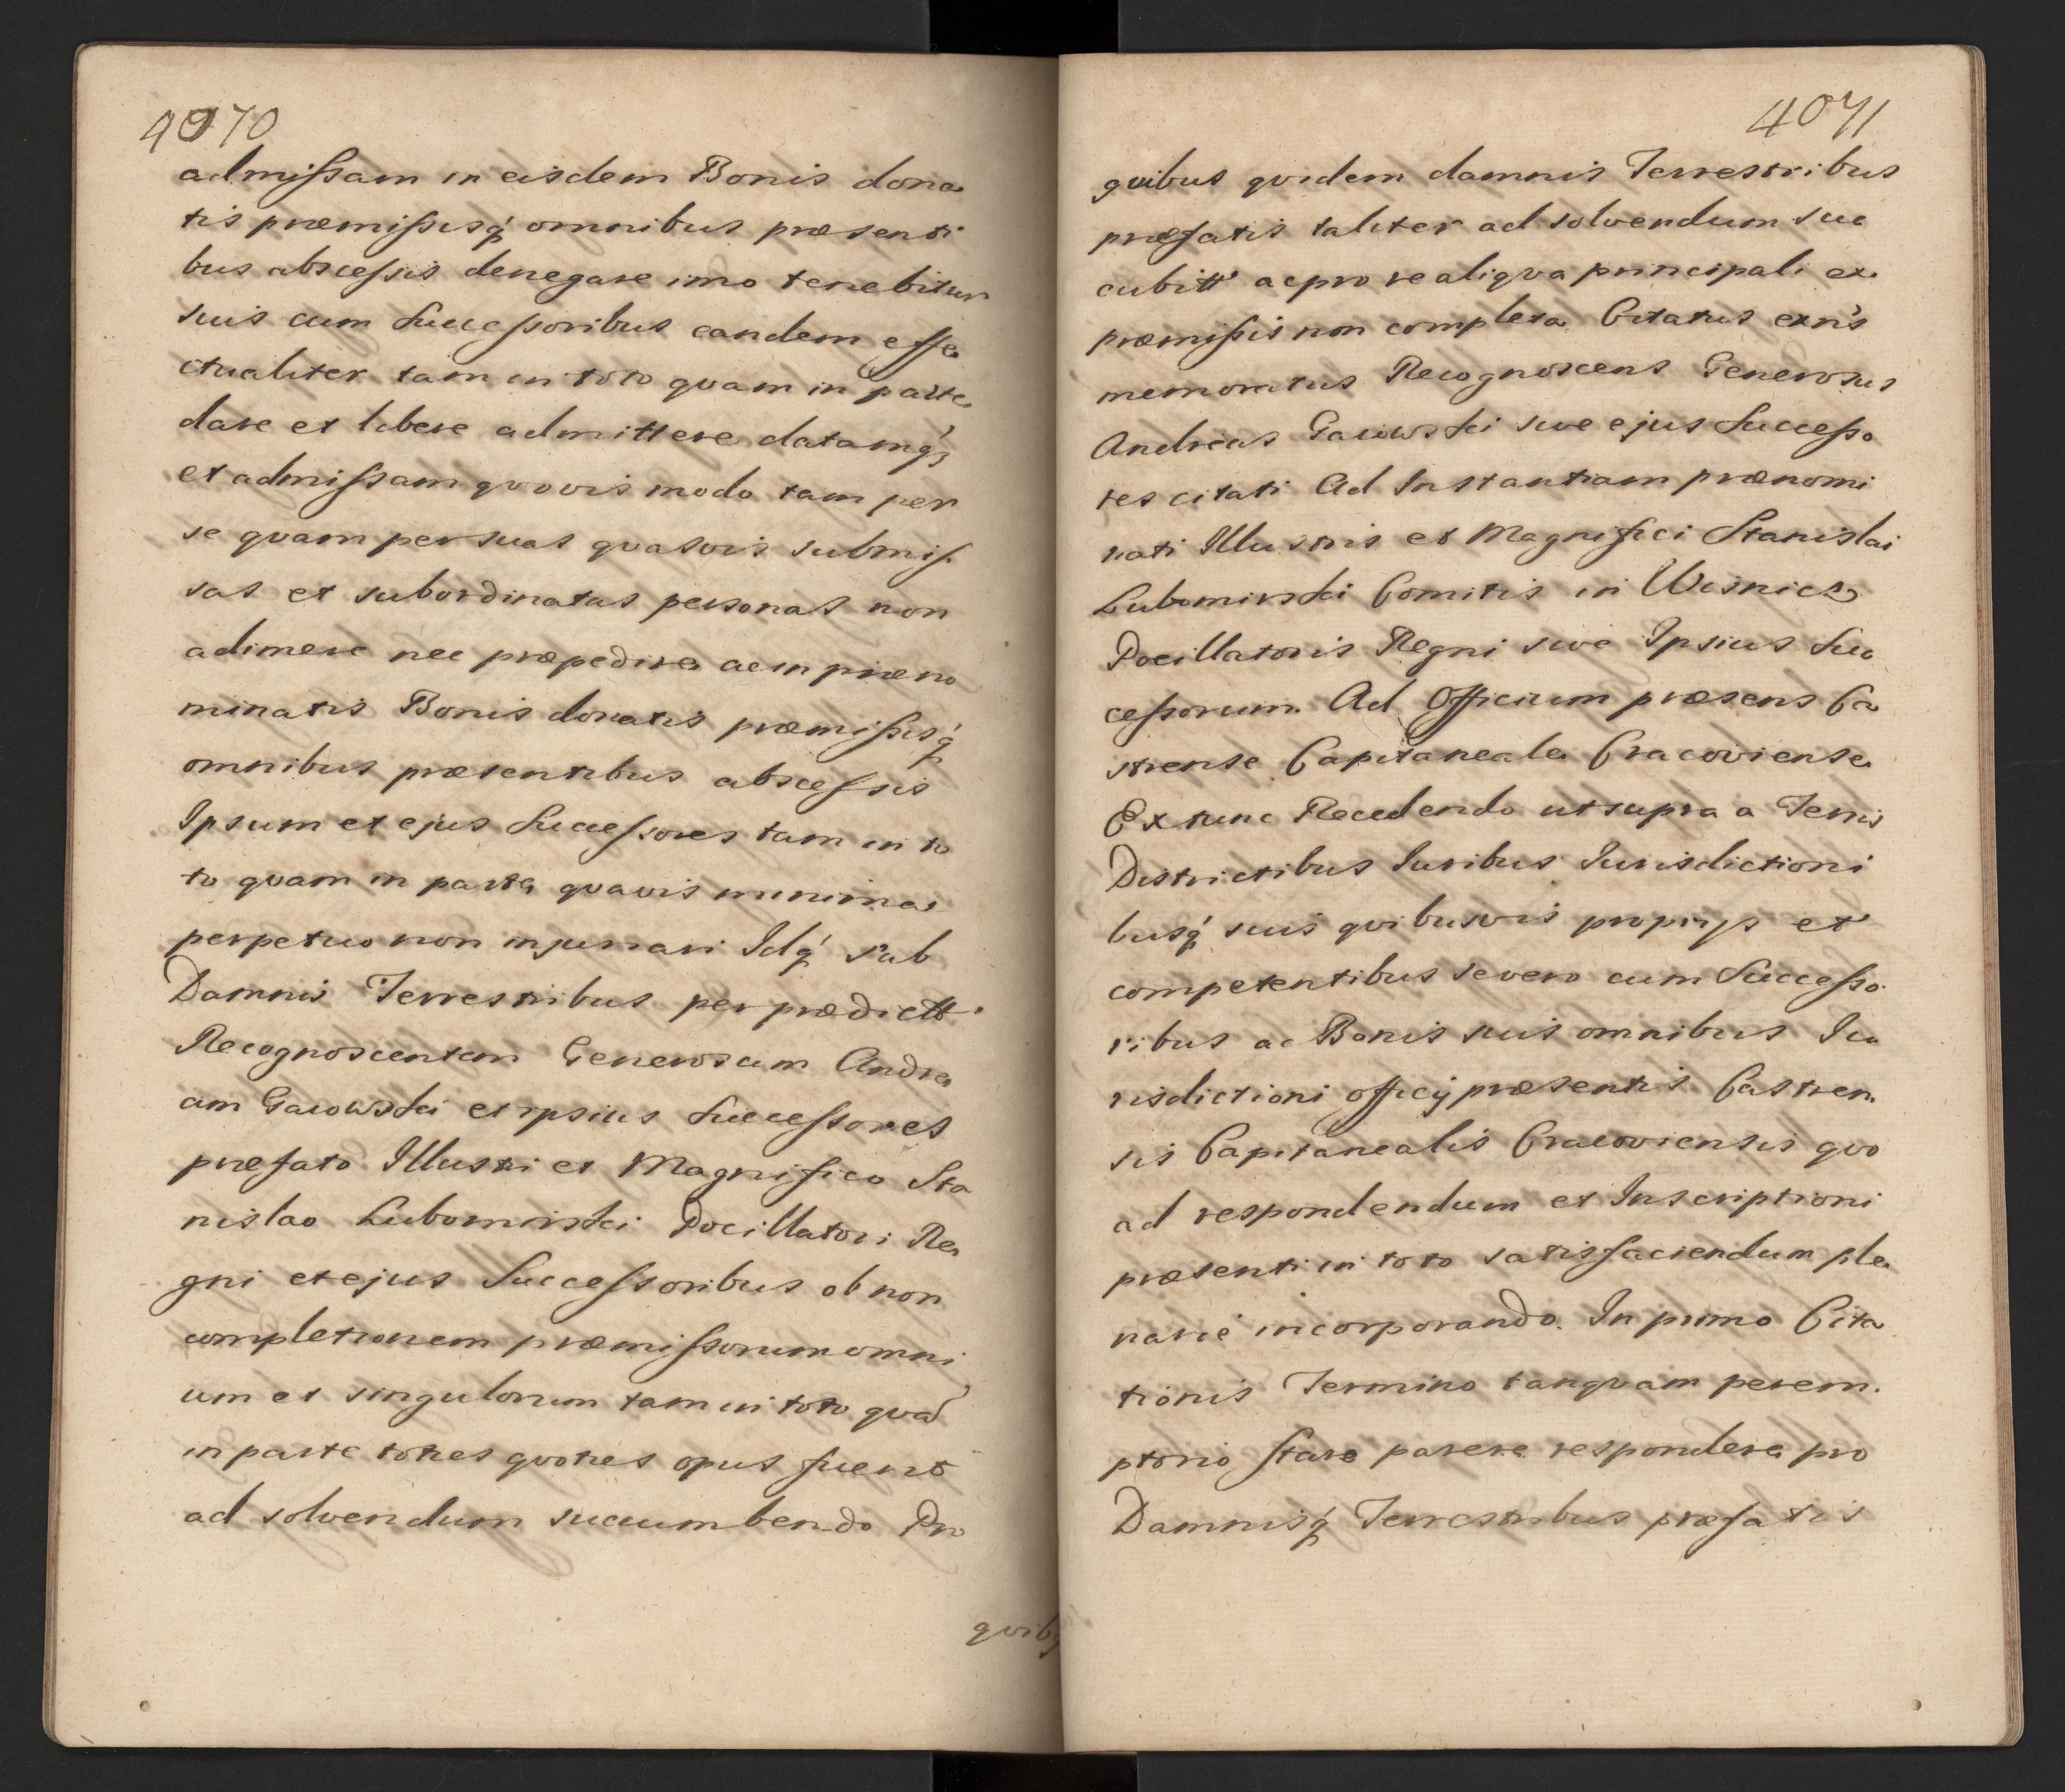 4070
admissam in eisdem Bonis dona
tis præmissisq́ omnibus præsenti
bus abscessis denegare imo tenebitur
suis cum Successoribus eandem effe
ctualiter tam in toto quam in parte
dare et libere admittere datamq́
et admissam quovis modo tam per
se quam per suas quasvis submis
sas et subordinatas personas non
adimere nec præpedire ac in præno
minatis Bonis donatis præmissisq́
omnibus præsentibus abscessis
Ipsum et ejus Successores tam in to
to quam in parte quavis minima
perpetuo non injuriari Idq́ sub
Damnis Terrestribus per prædictt
Recognoscentem Generosum Andre
am Gaiowski et ipsius Successores
præfato Illustri et Magnifico Sta
nislao Lubomirski Pocillatori Re
gni et ejus Successoribus ob non
completionem præmissorum omni
um et singulorum tam in toto qua
in parte toties quoties opus fuerit
ad solvendum succumbendo Pro
quib9
4071
quibus quidem damnis Terrestribus
præfatis taliter ad solvendum suc
cubitt ac pro re aliqua principali ex
præmissis non completa Citatus exn's
memoratus Recognoscens Generosus
Andreas Gaiowski sive ejus Successo
res citati Ad Instantiam prænomi
nati Illustris et Magnifici Stanislai
Lubomirski Comitis in Wisnicz
Pocillatoris Regni sive Ipsius Suc
cessorum. Ad Officium præsens Ca
strense Capitaneale Cracoviense
Ex tunc Recedendo ut supra a Terris
Districtibus Iuribus Iurisdictioni
busq́ suis quibusvis proprijs et
competentibus se vero cum Successo
ribus ac Bonis suis omnibus Iu
risdictioni officij præsentis Castren
sis Capitanealis Cracoviensis quo
ad respondendum et Inscriptioni
præsenti in toto satisfaciendum ple
narie incorporando. In primo Cita
tionis Termino tanquam perem
ptorio stare parere respondere pro
Damnisq́ Terrestribus præfatis